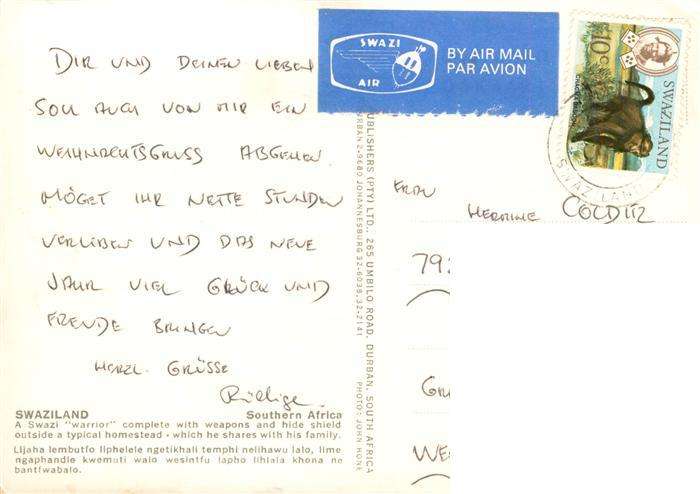 DIR UND DEINEN LIEBEN
SOLL AUCH VON MIR EIN
WEIHNACHTSGRUSS ABGEHEN.
MÖGET IHR NETTE STUNDEN
VERLEBEN UND DAS NEUE
JAHR VIEL GLÜCK UND
FREUDE BRINGEN
HERZL. GRÜSSE
Rüdiger
SWAZILAND Southern Africa
A Swazi "warrior" complete with weapons and hide shield
outside a typical homestead - which he shares with his family.
Lijaha lembutfo liphelele ngetikhali temphi nelihawu lalo, lime
ngaphandle kwemuti walo wesintfu lapho lihlala khona ne
bantfwabalo.
PUBLISHERS (PTY) LTD., 265 UMBILO ROAD, DURBAN, SOUTH AFRICA
DURBAN 2-9680 JOHANNESBURG 32-6038, 32-2141
PHOTO: JOHN HONE
SWAZI
AIR
BY AIR MAIL
PAR AVION
10c
SWAZILAND
SWAZILAND
FRAU
HERMINE COLDITZ
792
GR
WE